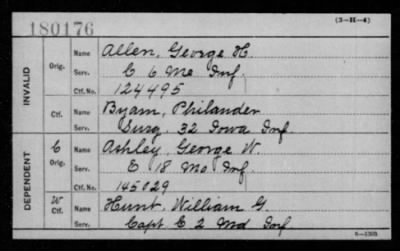 180176
(3—H—4)
INVALID
Orig.
Name Allen, George H.
Serv. C 6 Me Inf.
Ctf. No. 124495
Ctf.
Name Byam, Philander
Serv. Surg. 32 Iowa Inf
DEPENDENT
C
Orig.
Name Ashley, George W.
Serv. E 18 Mo Inf.
Ctf. No. 145029
W
Ctf.
Name Hunt, William G.
Serv. Capt E 2 Md Inf